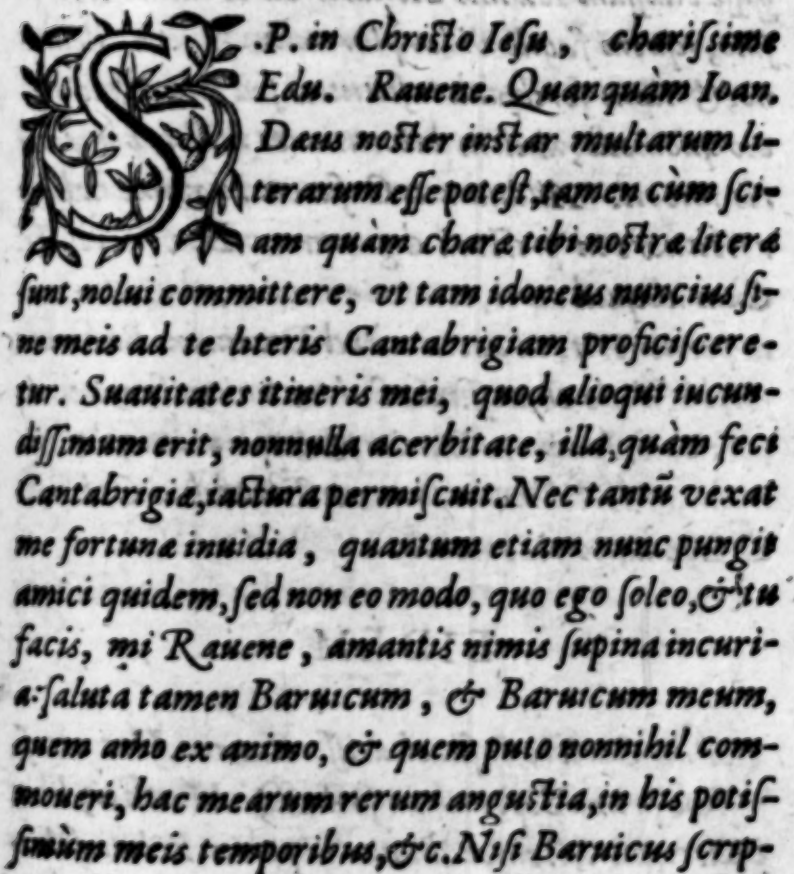 S.P. in Christo Iesu, charissime
Edu. Rauene. Quanquàm Ioan.
Daus noster instar multarum li-
terarum esse potest, tamen cùm sci-
am quàm charæ tibi nostræ literæ
sunt, nolui committere, vt tam idoneus nuncius si-
ne meis ad te literis Cantabrigiam proficiscere-
tur. Suauitates itineris mei, quod alioqui iucun-
dissimum erit, nonnulla acerbitate, illa, quàm feci
Cantabrigiæ, iactura permiscuit. Nec tantũ vexat
me fortunæ inuidia, quantum etiam nunc pungit
amici quidem, sed non eo modo, quo ego soleo, & tu
facis, mi Rauene, amantis nimis supina incuri-
a: saluta tamen Baruicum, & Baruicum meum,
quem amo ex animo, & quem puto nonnihil com-
moueri, hac mearum rerum angustia, in his potis-
simùm meis temporibus, &c. Nisi Baruicus scrip-